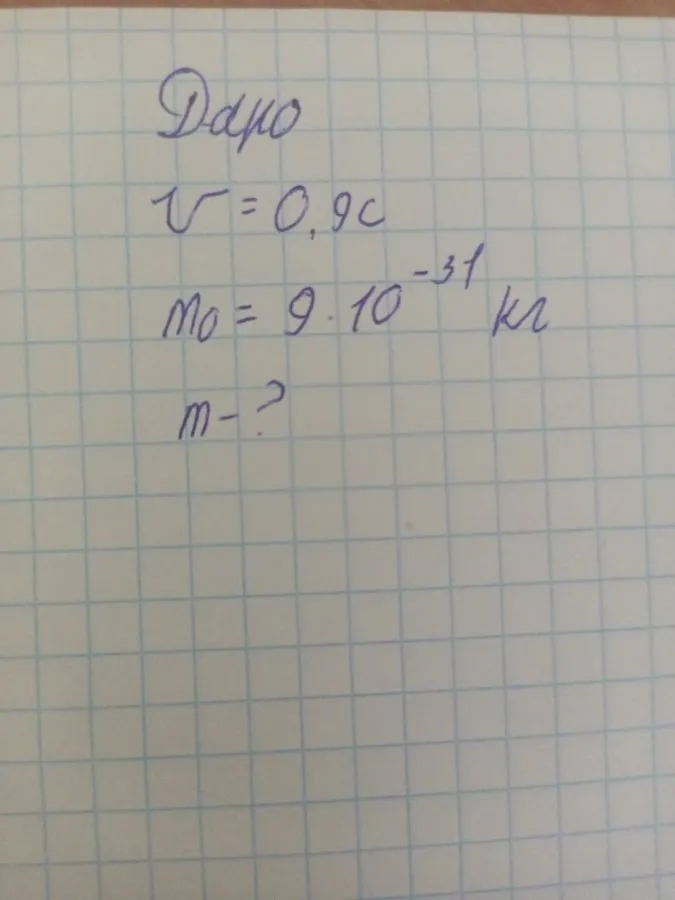 Дано
v = 0,9c
m₀ = 9 · 10⁻³¹ кг
m - ?